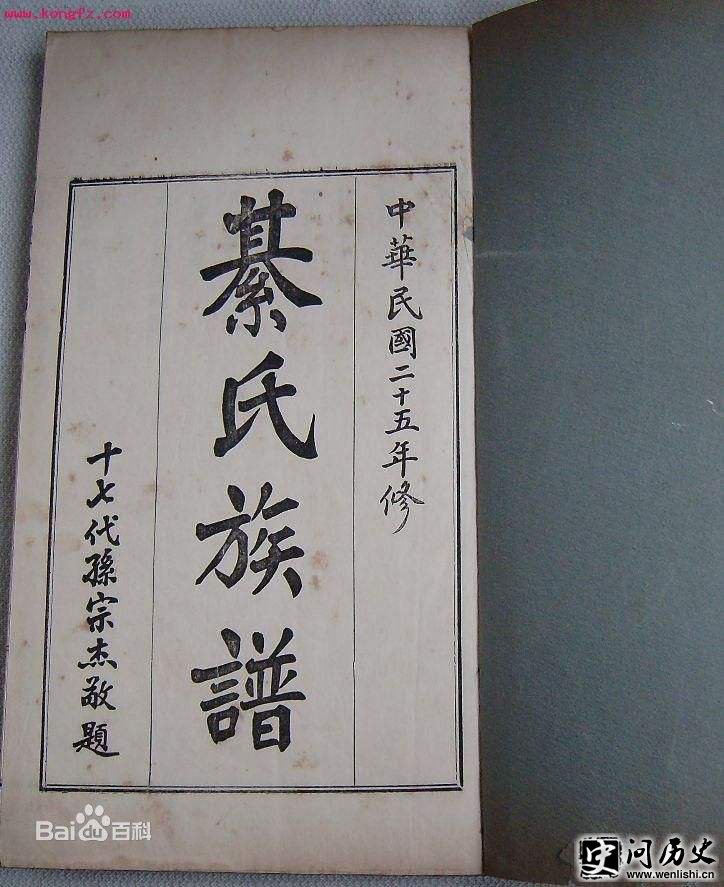 www.kongfz.com
中華民國二十五年修
綦氏族譜
十七代孫宗杰敬題
Bai du 百科
史问历史
www.wenlishi.cn